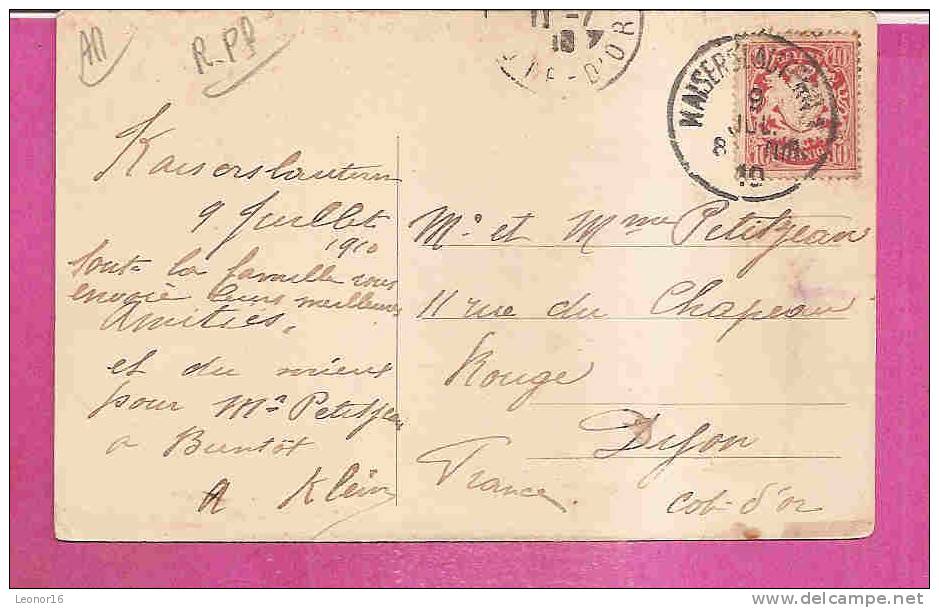 AN
R.PP
11 -7
10
COTE-D'OR
KAISERSLAUTERN
9
JUL.
8
10
10
10
Kaiserslautern
9 Juillet
1910
toute la famille vous
envoie leurs meilleurs
Amitiés,
et du mien
pour Mr Petitjean
a Bientôt
A Klein
Mr et Mme Petitjean
11 rue du Chapeau
Rouge
Dijon
France
Cote-d'or
Leonor16
http://www.delcampe.net